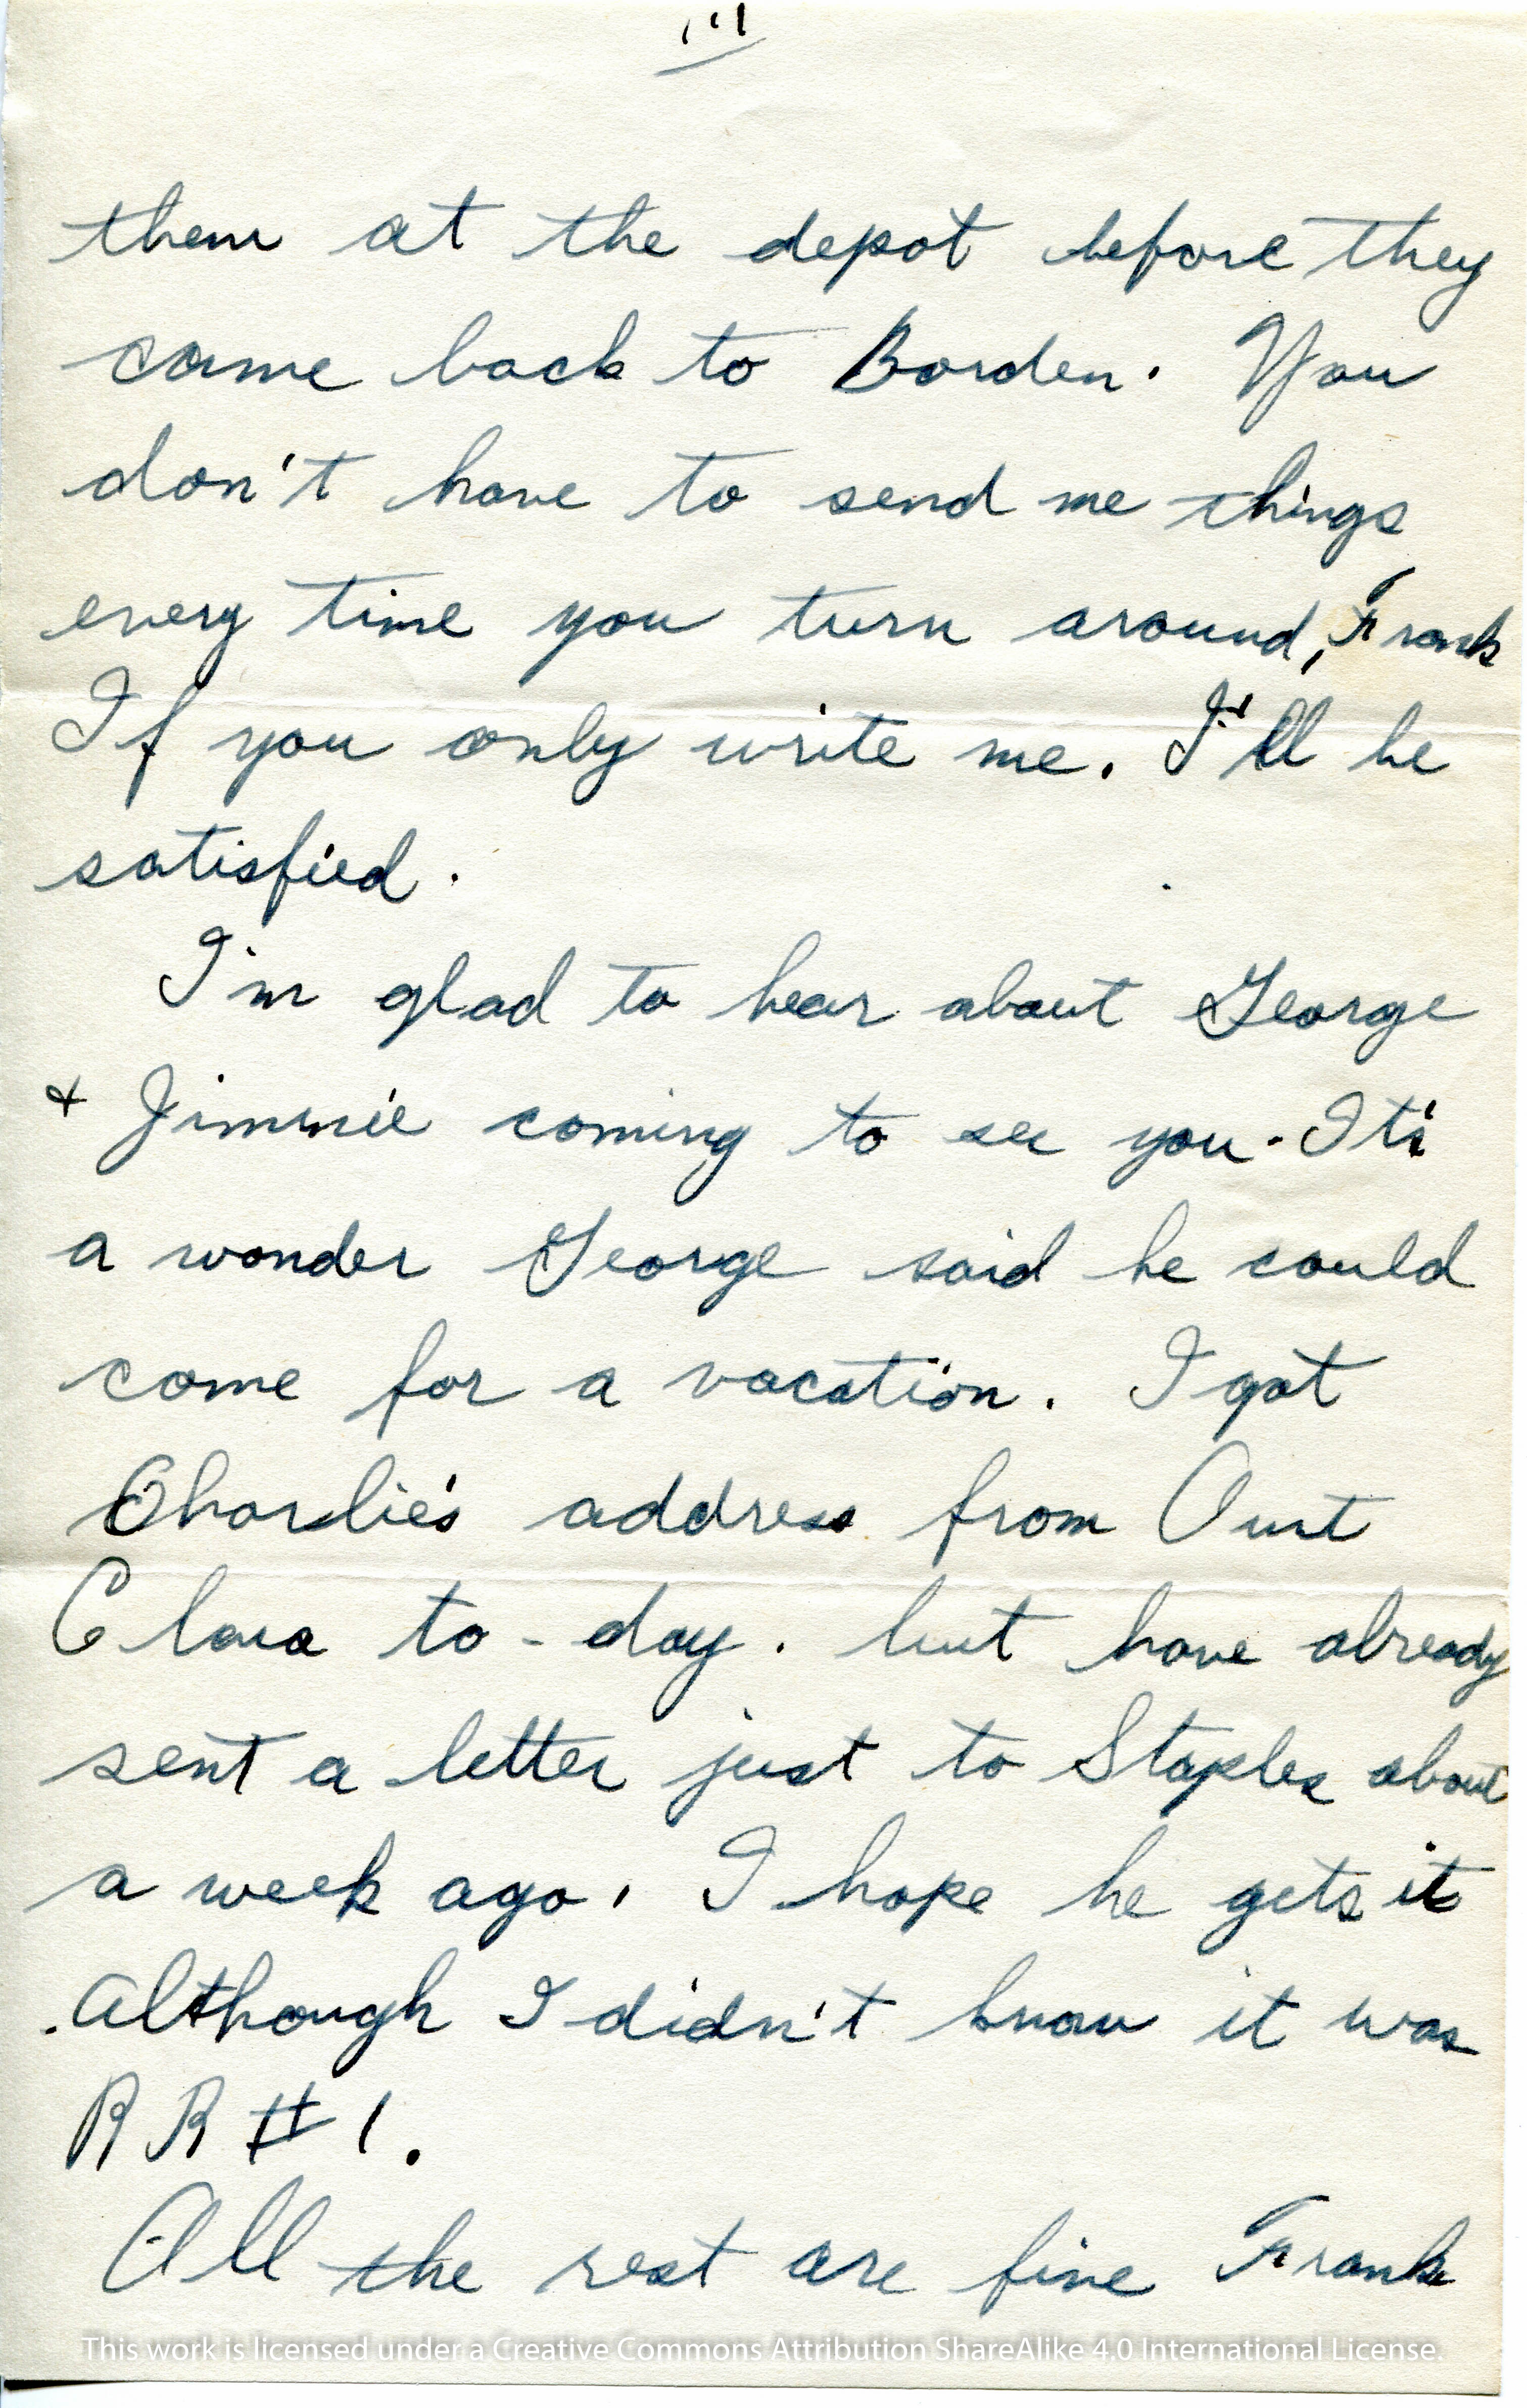 III
them at the depot before they
came back to Borden. You
don't have to send me things
every time you turn around, Frank
If you only write me. I'll be
satisfied.
I'm glad to hear about George
+ Jimmie coming to see you. It's
a wonder George said he could
come for a vacation. I got
Charlie's address from Aunt
Clara to-day. but have already
sent a letter just to Staples about
a week ago. I hope he gets it
Although I didn't know it was
RR # 1.
All the rest are fine Frank
This work is licensed under a Creative Commons Attribution ShareAlike 4.0 International License.